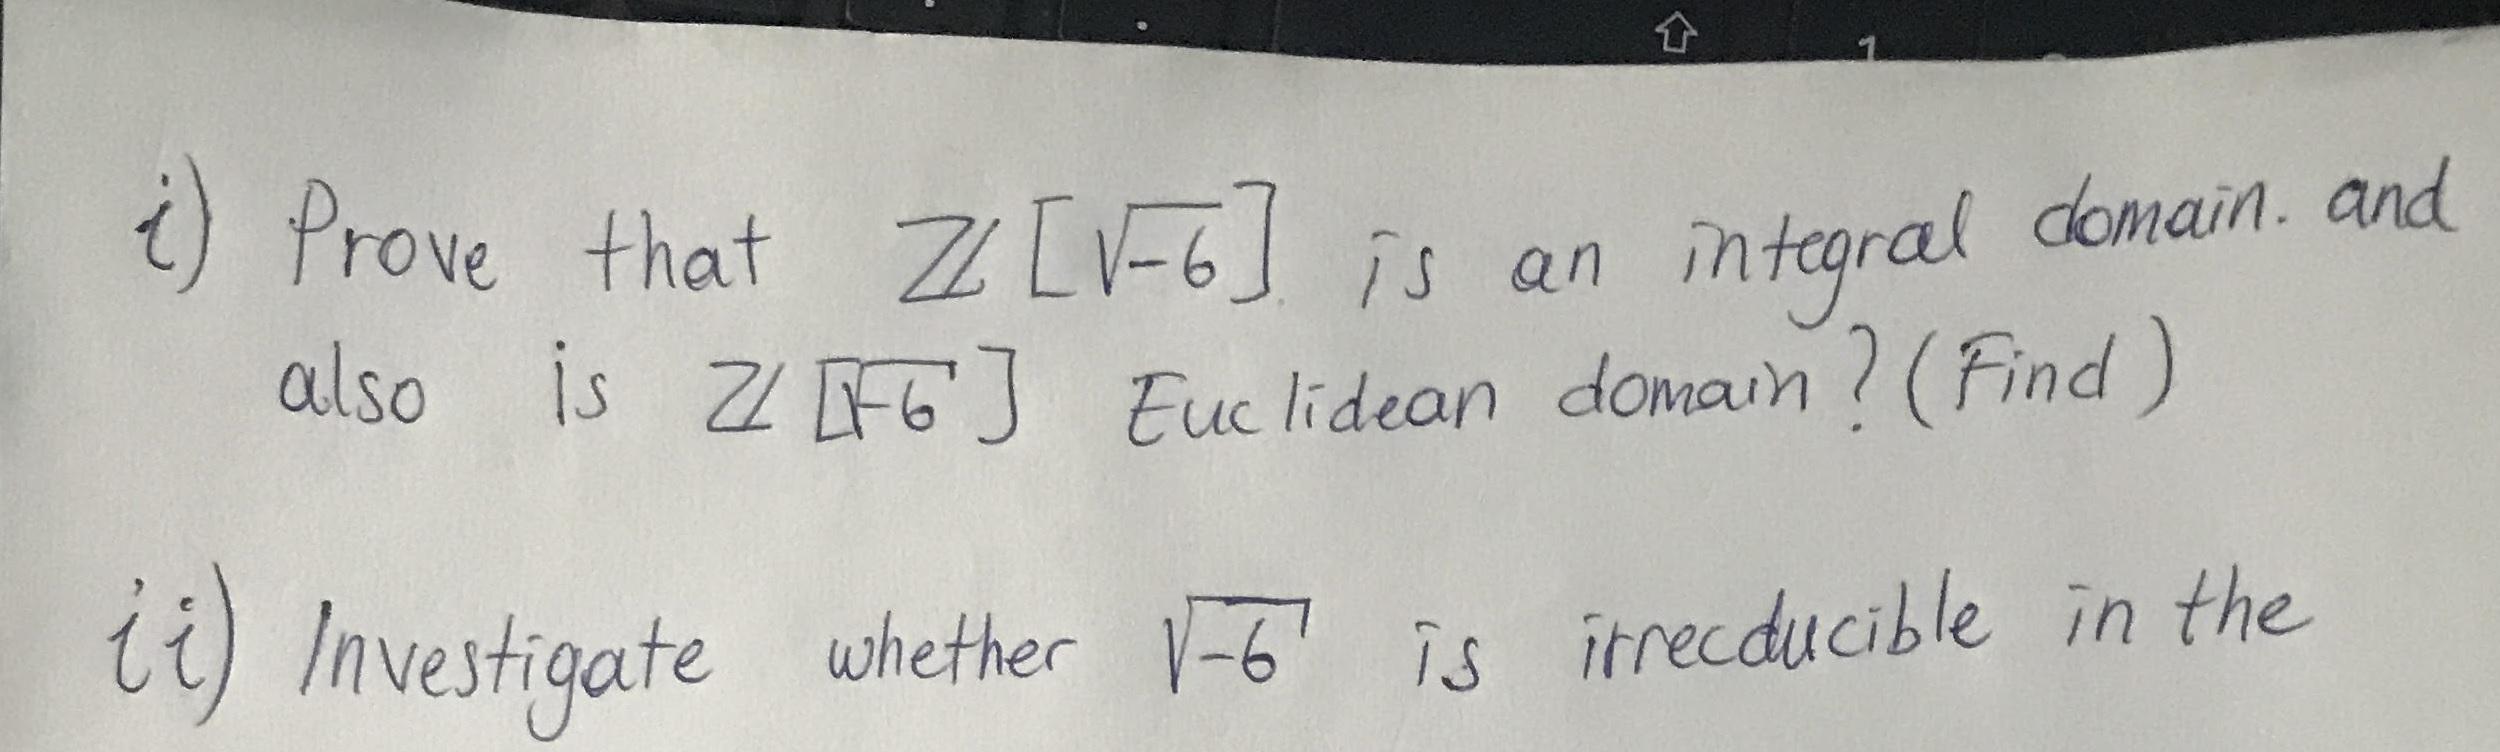 i) Prove that ℤ[√-6] is an integral domain. and
also is ℤ[√-6] Euclidean domain? (Find)
ii) Investigate whether √-6 is irrecducible in the